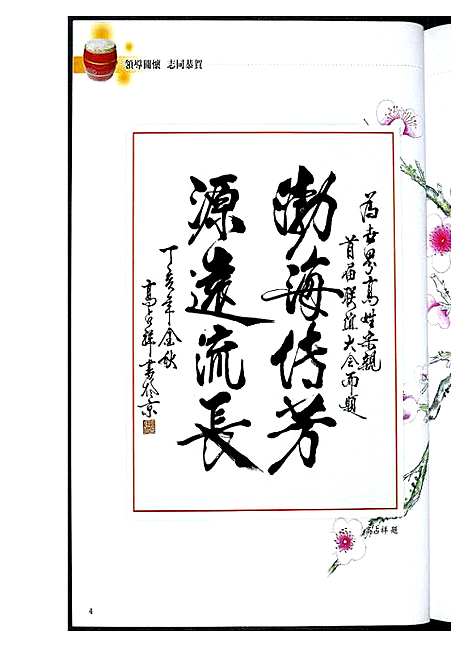 領導關懷 志同恭賀
为世界高姓宗親
首届联谊大会而题
渤海传芳
源遠流長
丁亥年金秋
高占祥書於京
高占祥 題
4